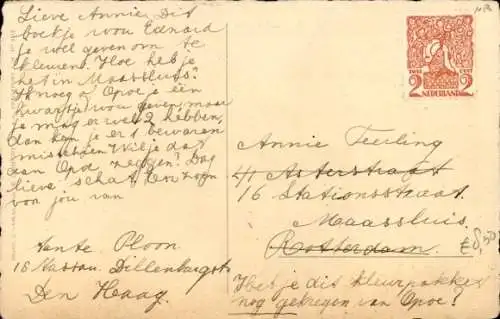 Lieve Annie, Dit
boekje wou Eduard
je wel geven om te
kleuren. Hoe heb je
het in Maassluis?
Ik vroeg of Opoe je één
kwartje wou geven, maar
je mag er wel 2 hebben,
dan kun je er 1 bewaren
misschien. Wil je dat
aan Opoe zeggen? Dag
lieve schat. Een zoen
voor jou van
Tante Ploon
18 Nassau Dillenburgst
Den Haag
NEDERLAND
2 2
CENT
Annie Teerling
41 Asterstraat
16 Stationsstraat
Maassluis.
Rotterdam.
€ 8,50
Heb je dit kleurpakket
nog gekregen van Opoe?